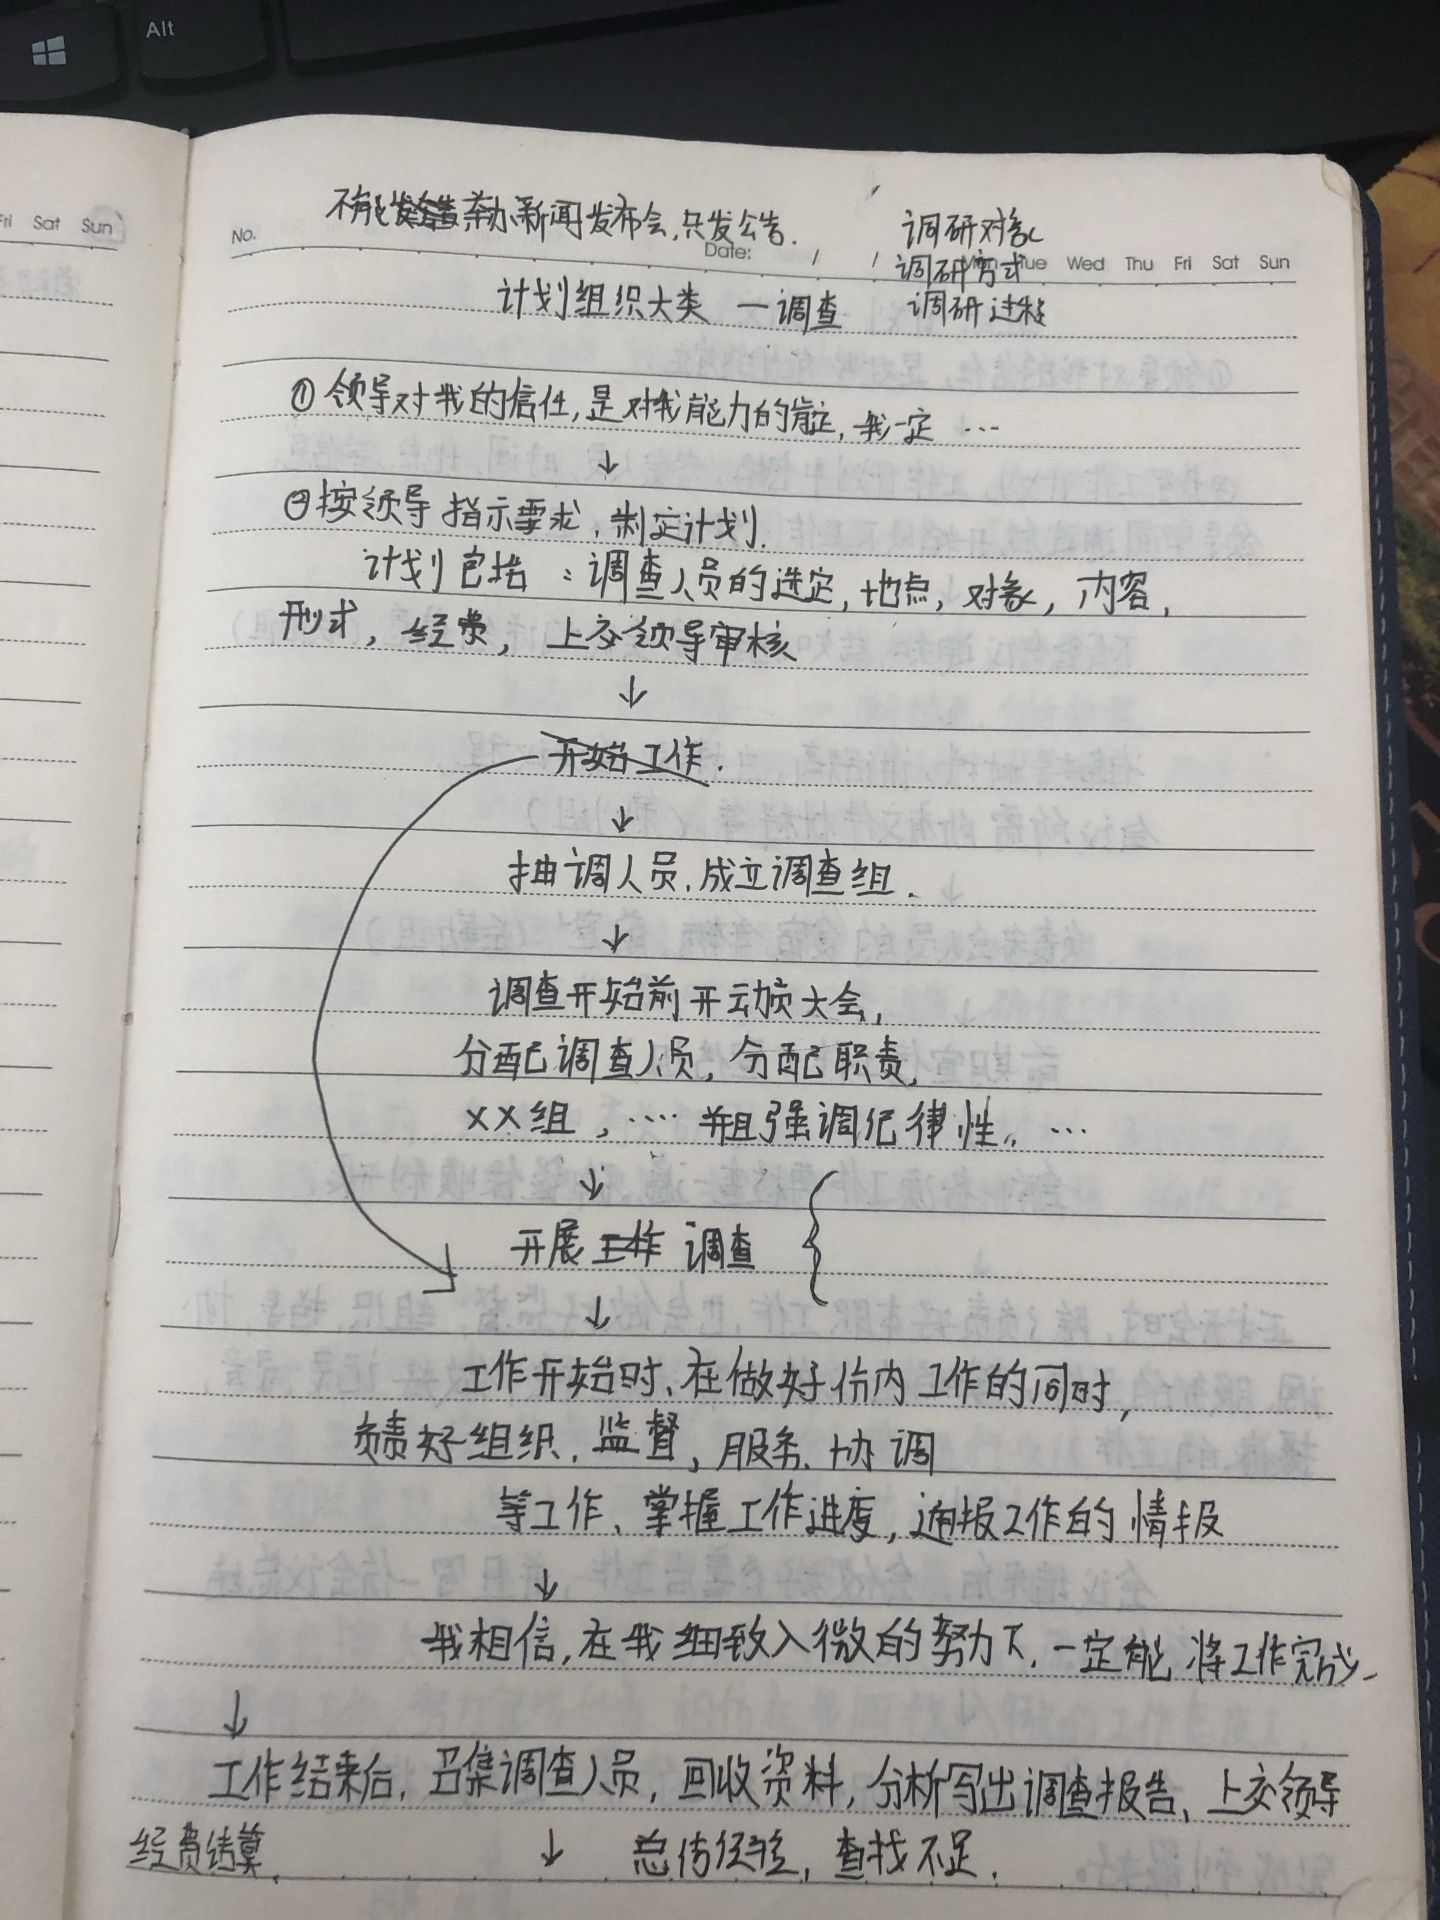 Alt
Fri Sat Sun
不能举办新闻发布会,只发公告.
调研对象
No.
Date: / /
Tue Wed Thu Fri Sat Sun
调研方式
计划组织大类 一调查
调研过程
①领导对我的信任,是对我能力的肯定,我一定 …
↓
②按领导指示要求,制定计划.
计划包括:调查人员的选定,地点,对象,内容,
形式,经费,上交领导审核
↓
开始工作.
↓
抽调人员,成立调查组.
↓
调查开始前开动员大会,
分配调查人员,分配职责,
××组,…. 并且强调纪律性,…
↓
开展工作 调查 {
↓
工作开始时,在做好份内工作的同时,
负责好组织,监督,服务,协调
等工作,掌握工作进度,通报工作的情报
↓
我相信,在我细致入微的努力下,一定能将工作完成
↓
工作结束后,召集调查人员,回收资料,分析写出调查报告,上交领导
经费结算. ↓ 总结经验,查找不足.